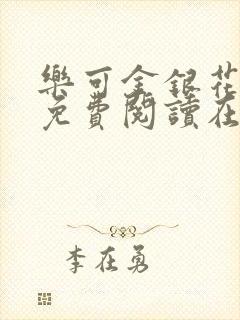 樂可金銀花
免費閱讀在
李在勇